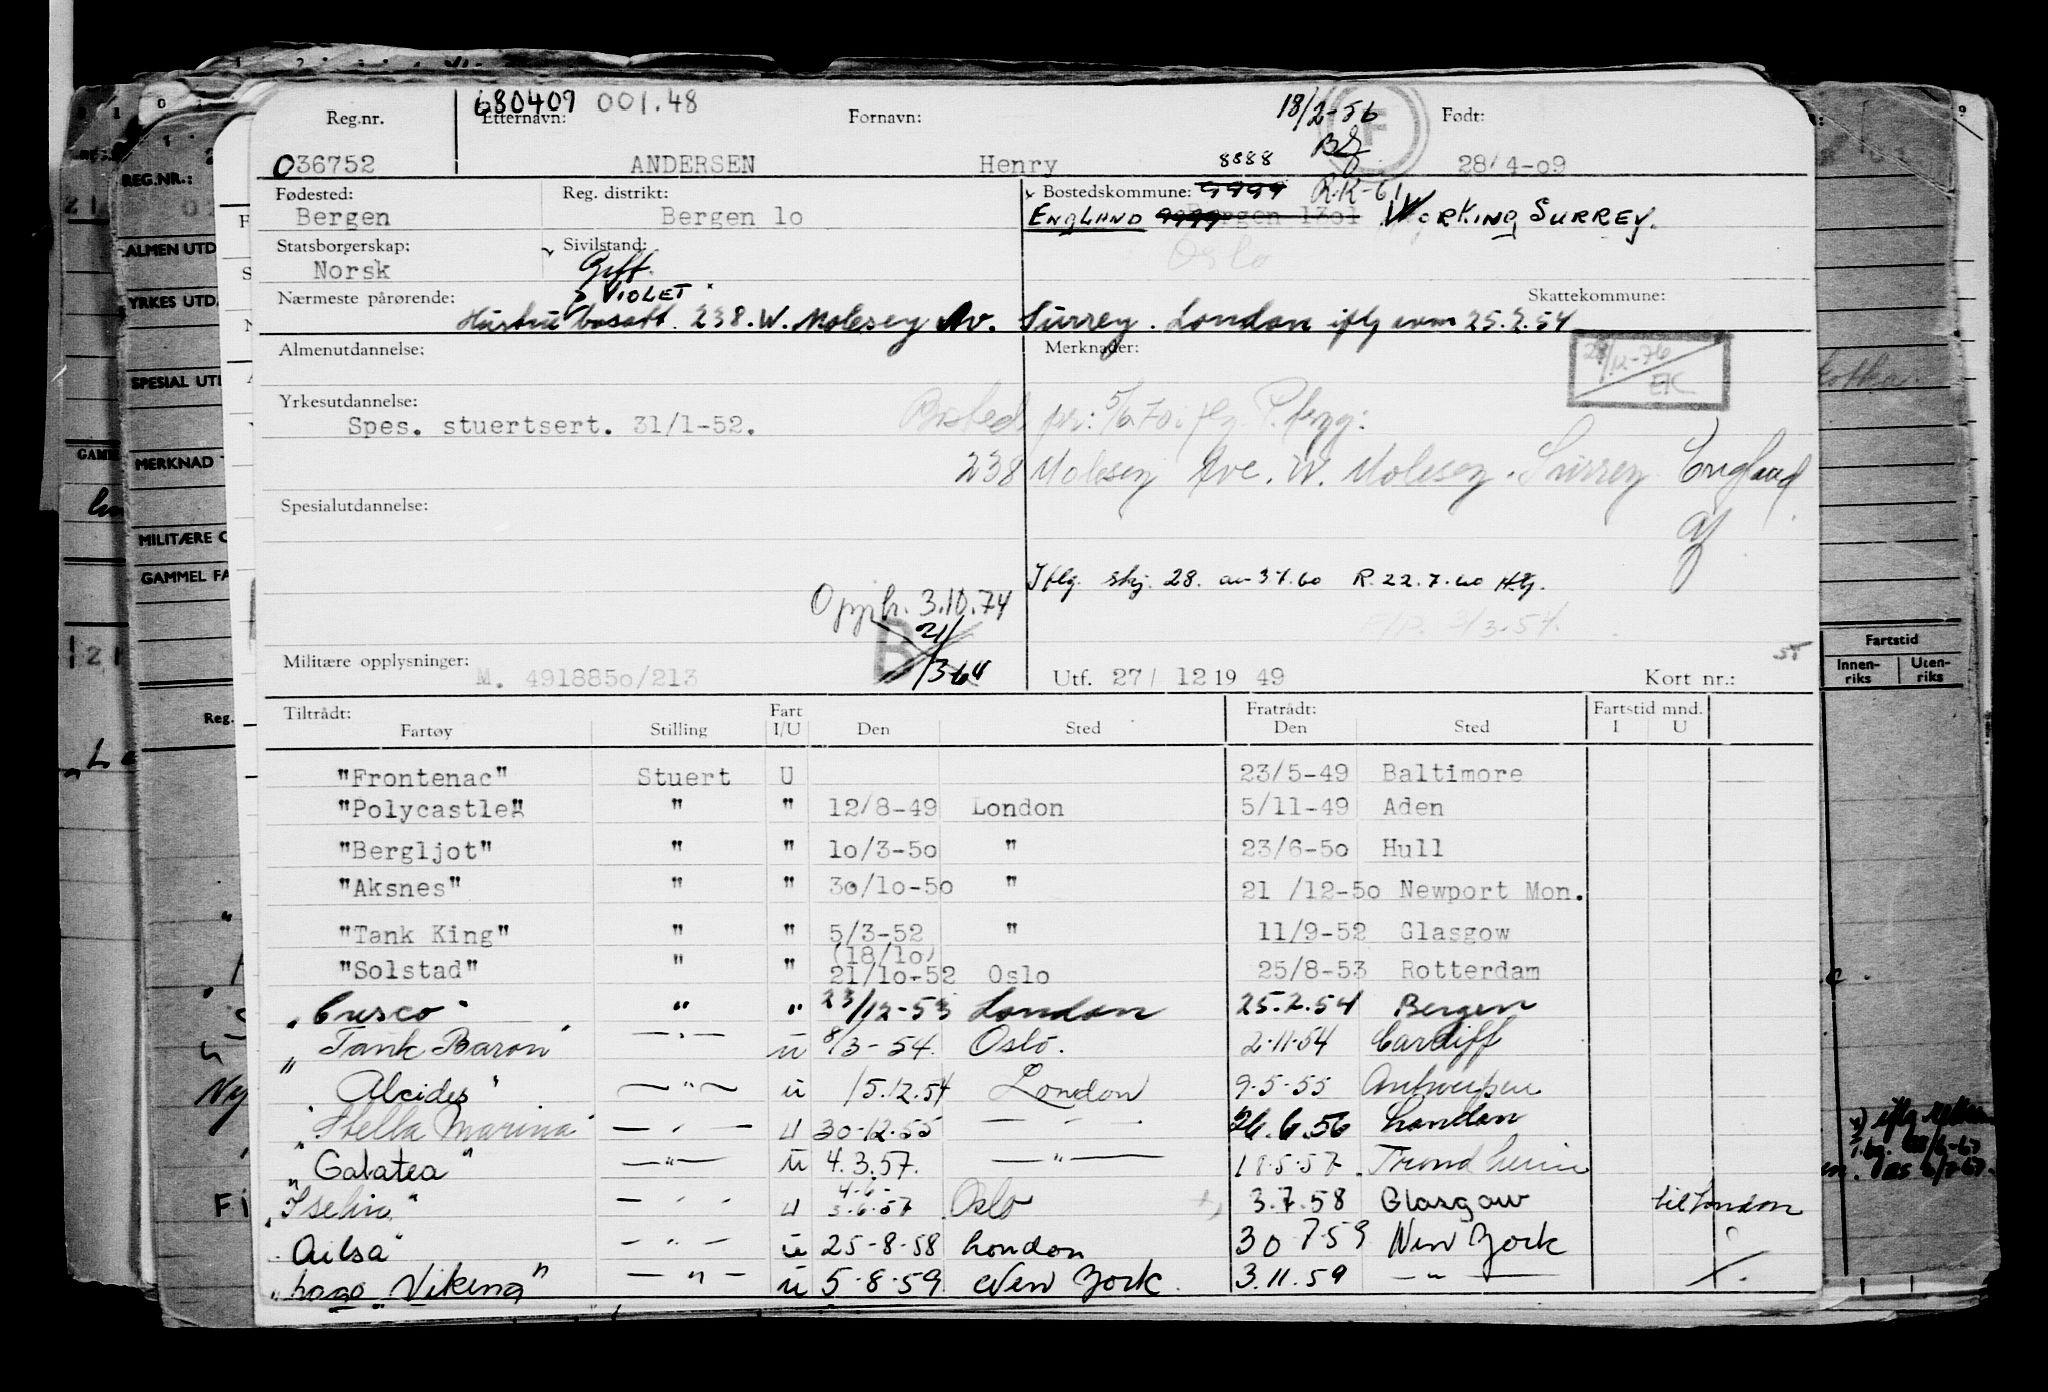 680409 001.48
18/2-56
Reg.nr. Etternavn: Fornavn: Født:
036752 ANDERSEN Henry 28/4-09
8888
Fødested: Reg. distrikt: Bostedskommune: 9999 R.K-61
Bergen Bergen 10 ENGLAND 9999 Bergen 1301 WORKING, SURREY.
Oslo
Statsborgerskap: Sivilstand:
Norsk Gift.
VIOLET
Nærmeste pårørende: Skattekommune:
Hustru bosatt. 238. W. Molesey Av. Surrey. London iflg anm 25.2.54
Almenutdannelse: Merknader:
28/12-76
EK
Yrkesutdannelse:
Bosted pr: 5/6.70 iflg.
Spes. stuertsert. 31/1-52.
238 Molesey Ave. W. Molesey. Surrey England
Spesialutdannelse:
Iflg. skj. 28. av 3.7.60 R.22.7.60 H.G.
Opprbr. 3.10.74
3/3.54.
B 21/3 64
Militære opplysninger: 55
M. 4918850/213 Utf. 27/ 12 19 49 Kort nr.:
Tiltrådt: Fart Fratrådt: Fartstid mnd.
Fartøy Stilling I/U Den Sted Den Sted I U
"Frontenac" Stuert U 23/5-49 Baltimore
"Polycastle" " " 12/8-49 London 5/11-49 Aden
"Bergljot" " " 10/3-50 " 23/6-50 Hull
"Aksnes" " " 30/10-50 " 21 /12-50 Newport Mon.
"Tank King" " " 5/3-52 " 11/9-52 Glasgow
(18/10)
"Solstad" " " 21/10-52 Oslo 25/8-53 Rotterdam
"Cusco" " " 23/12-53 London 25.2.54 Bergen
"Tank Baron" — " — u 8/3-54. Oslo. 2.11.54 Cardiff
"Alcides" — " — u 15.12.54 London 9.5.55 Antwerpen
"Stella Marina" — " — u 30.12.55 — " — 26.6.56 London
"Galatea" — " — u 4.3.57. — " — 18.5.57. Trondheim
4-6-
"Iselin" — " — u 3.6.57 Oslo 3.7.58 Glasgow til London
"Ailsa" — " — u 25-8-58 London 30 7-59 New York
"Lago Viking" — " — u 5-8-59 New York. 3.11.59 — " —
REG.NR.:
ALMEN UTD
YRKES UTDA
SPESIAL UTD
MERKNAD
MILITÆRE O
GAMMEL FA
Reg.
Fartstid
Innen-
riks
Uten-
riks